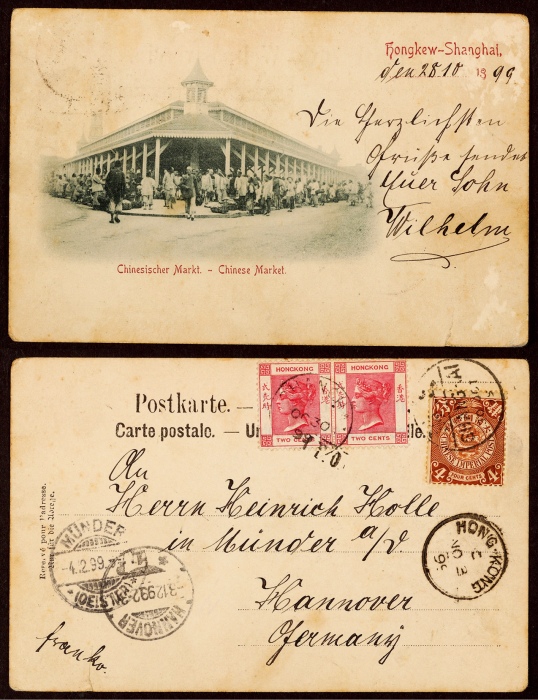 Hongkew-Shanghai,
den 28.10 1899
Die Herzlichsten
Grüße sendet
Euer Sohn
Wilhelm
Chinesischer Markt. - Chinese Market.
HONGKONG
TWO CENTS
HONGKONG
香港
TWO CENTS
Postkarte. —
Carte postale. —
CHINESE IMPERIAL POST
FOUR CENTS
An
Herrn Heinrich Holle
in Münder a/D
Hannover
Germany
Reservé pour l'adresse.
Nur für die Adresse.
MÜNDER
(DEISTER)
HANNOVER
HONG-KONG
C
NO 3
99
franko.